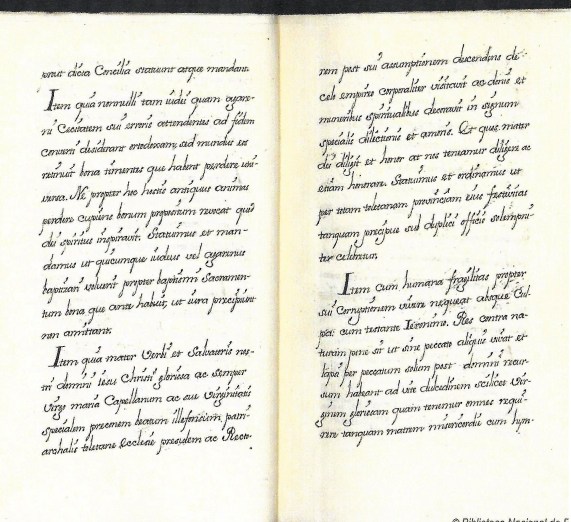 sicut dicta Concilia statuunt atque mandant.
Item quia nonnulli tam iudei quam agare-
ni Cecitatem sui erroris attendentes ad fidem
Converti desiderant ortodoxam, sed mundus eos
retinuit bona timentes que habent perdere uni-
versa. Ne propter hoc hostis antiquus animas
perdere cupiens bonum propositum revocat quod
dei spiritus inspiravit. Statuimus et man-
damus ut quicumque iudeus vel agarenus
baptizari voluerit propter baptismi Sacramen-
tum bona que ante habuit, ut iura precipiunt
non amittant.
Item quia mater Verbi et Salvatoris nos-
tri domini iesus Christi gloriosa ac semper
Virgo maria Capellanum ac sue Virginitatis
specialem preconem beatum illefonsum, patri-
archalis toletane ecclesie presidem ac Recto-
rem post sui assumptionem descendens de
celi empireo corporaliter visitavit ac donis et
muneribus spiritualibus decoravit in signum
specialis dilectionis et amoris. Et quos mater
dei diligit et honor at nos teneamur diligere ac
etiam honorare. Statuimus et ordinamus ut
per totam toletanam provinciam eius festivitas
tanquam precipua sub duplici officio solempni-
ter celebretur.
Item Cum humana fragilitas propter
sui Corruptionem vivere nequeat absque Cul-
pa: cum testante Ieronimo. Res contra na-
turam pene sit ut sine peccato aliquis vivat et
lapsi per peccatum solum post domini recur-
sum habeant ad vite ducedinem scilicet Vir-
ginem gloriosam quam tenentur omnes requi-
rere tanquam matrem misericordie cum hym-
© Biblioteca Nacional de E